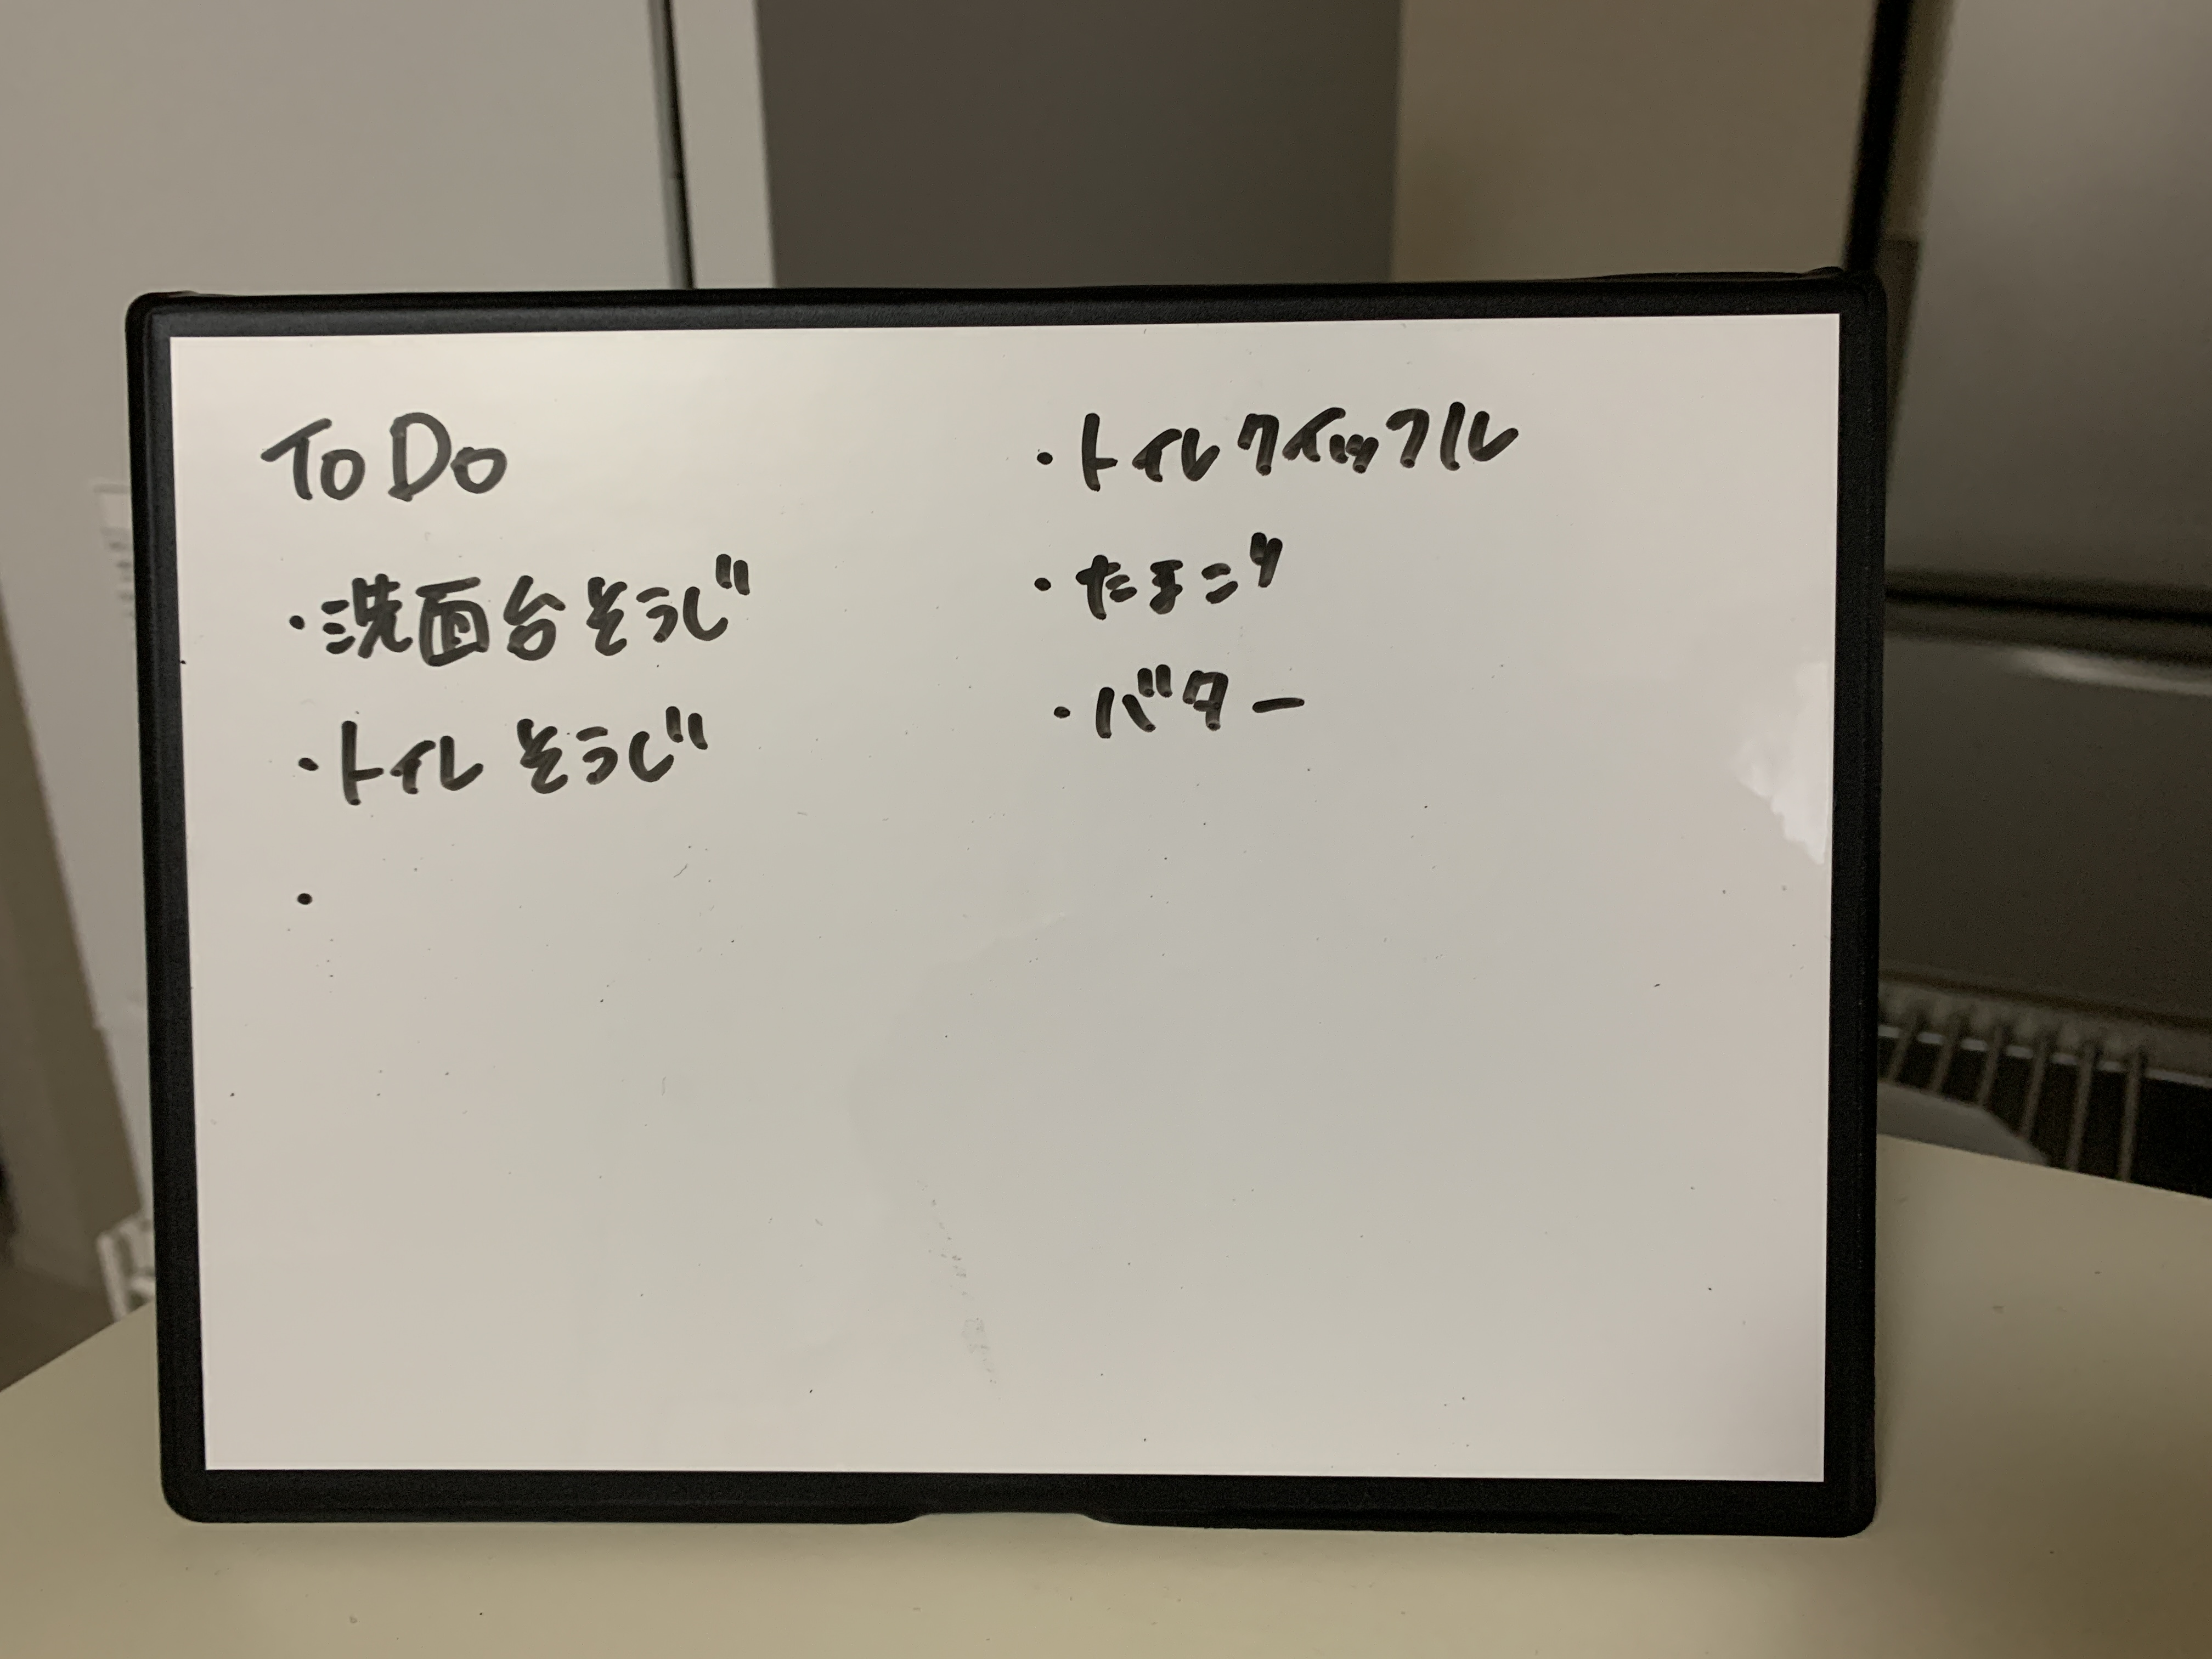 To Do
・洗面台そうじ
・トイレそうじ
・
・トイレクイックル
・たまごy
・バター